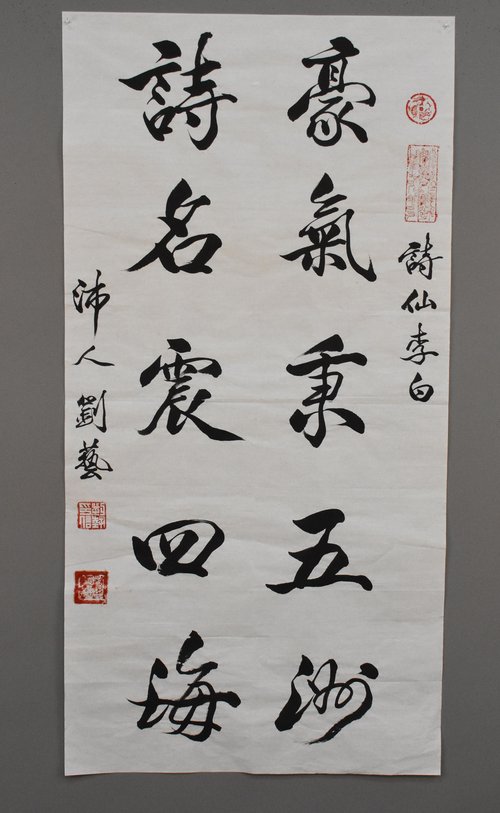 詩仙李白
豪氣秉五洲
詩名震四海
沛人劉藝